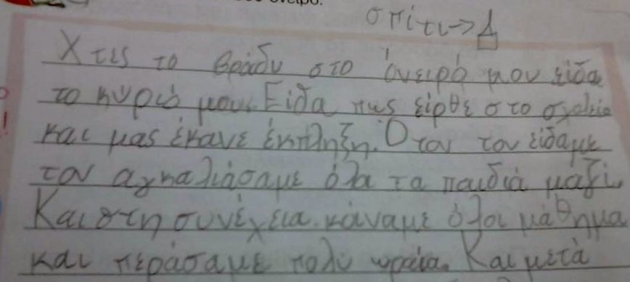 όνειρο.
σπίτι → Δ
Χτες το βράδυ στο όνειρό μου είδα
το κυριό μου. Είδα πως είρθε στο σχολείο
και μας έκανε έκπληξη. Όταν τον είδαμε
τον αγκαλιάσαμε όλα τα παιδιά μαζί.
Και στη συνέχεια κάναμε όλοι μάθημα
και περάσαμε πολύ ωραία. Και μετά